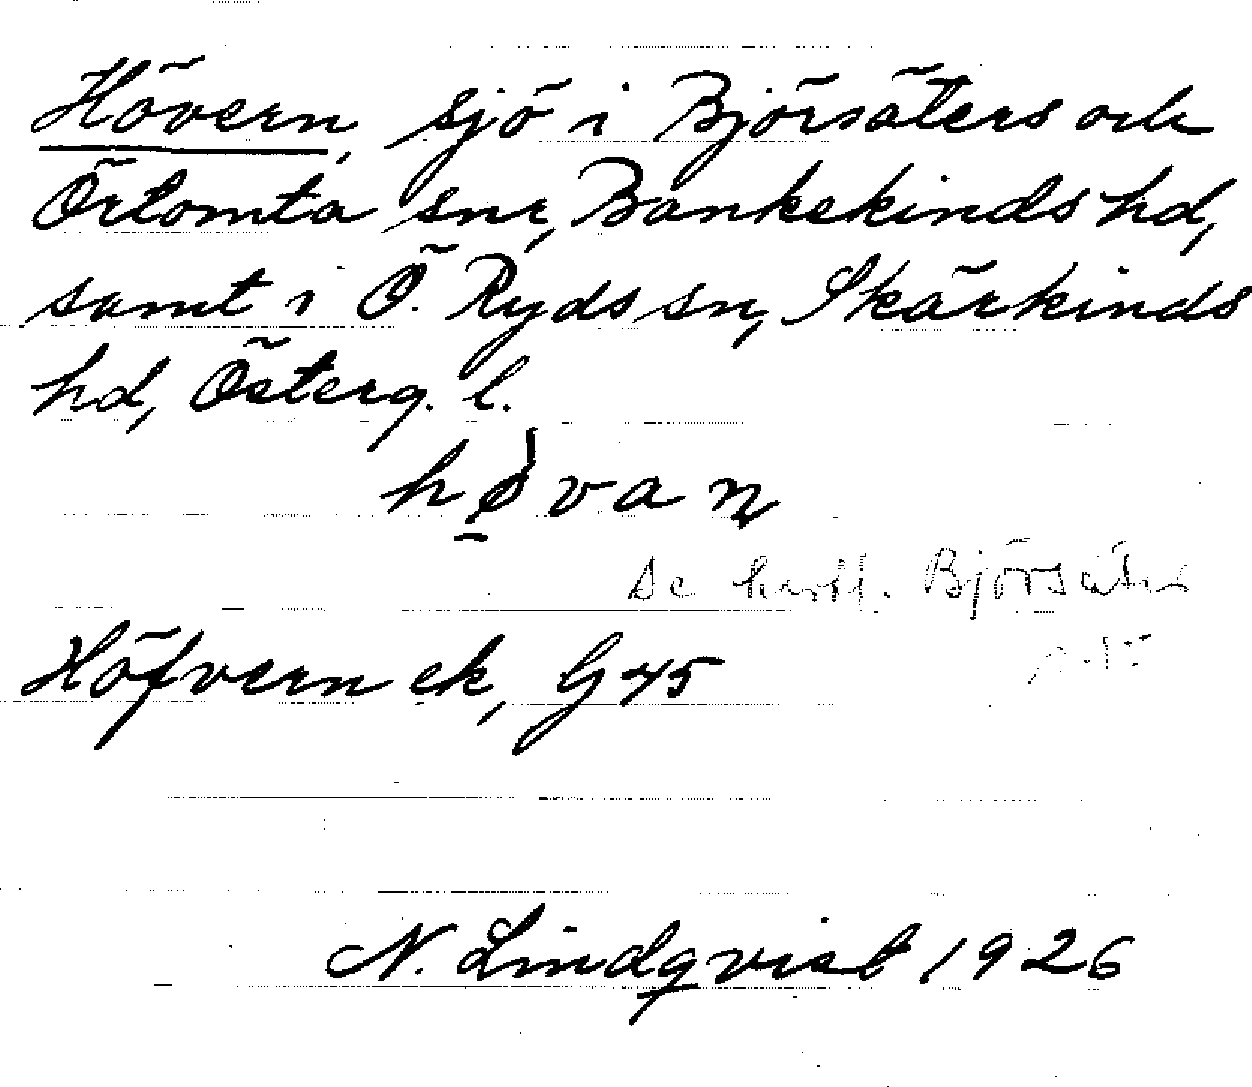 Hövern, sjö i Björsäters och
Örtomta snr, Bankekinds hd,
samt i Ö. Ryds sn, Skärkinds
hd, Österg. l.
hø̱̀van
Se kartl. Björsäter
Höfvern ek, G 45
N. Lindqvist 1926